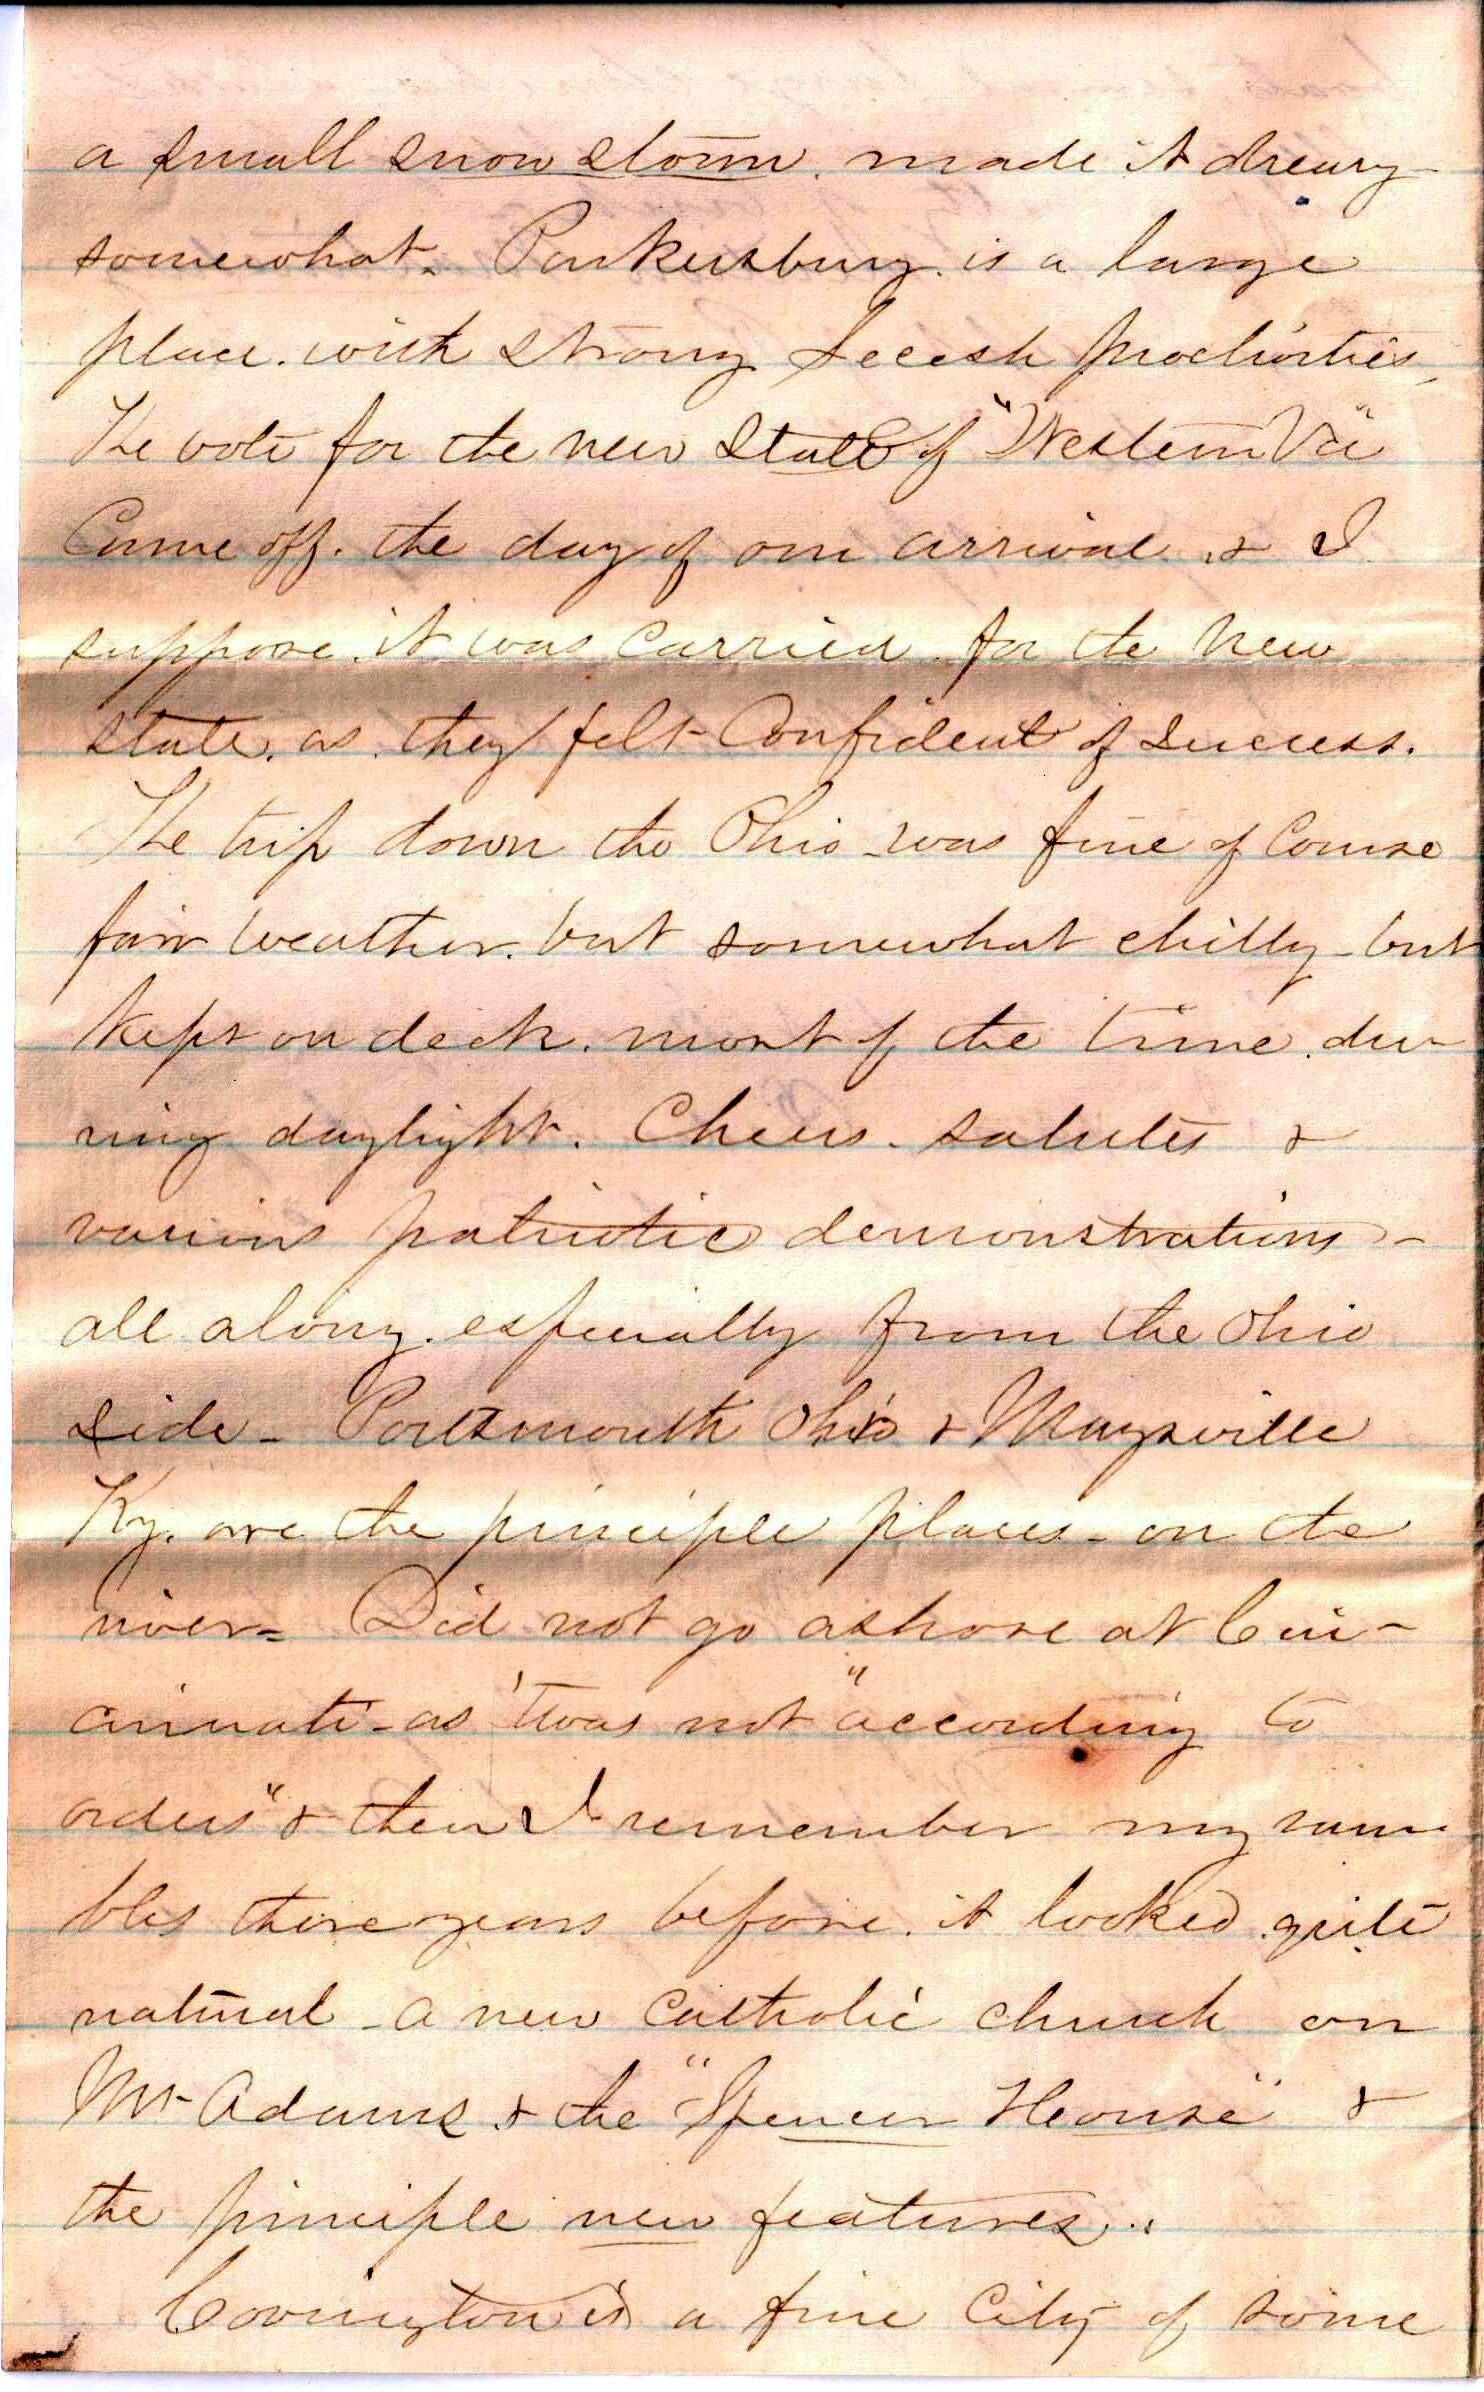 a small snow storm. made it dreary
somewhat. Parkersburg. is a large
place. with strong Secesh proclivities,
The vote for the new State of "Western Va"
Came off. the day of our arrival. & I
suppose. it was carried. for the New
state. as. they felt Confident of success.
The trip down the Ohio was fine of Course
fair weather. but somewhat chilly - but
kept on deck. most of the time. du-
ring daylight. Cheers. salutes &
various patriotic demonstrations -
all along. especially from the Ohio
side - Portsmouth Ohio & Maysville
Ky. are the principle places - on the
river = Did not go ashore at Cin-
cinnati - as 'twas not "according to
orders" & then I remember my ram-
bles there years before. it looked quite
natural - a new Catholic church on
Mt Adams. & the "Spencer House" &
the principle new features..
Covington is a fine City of some